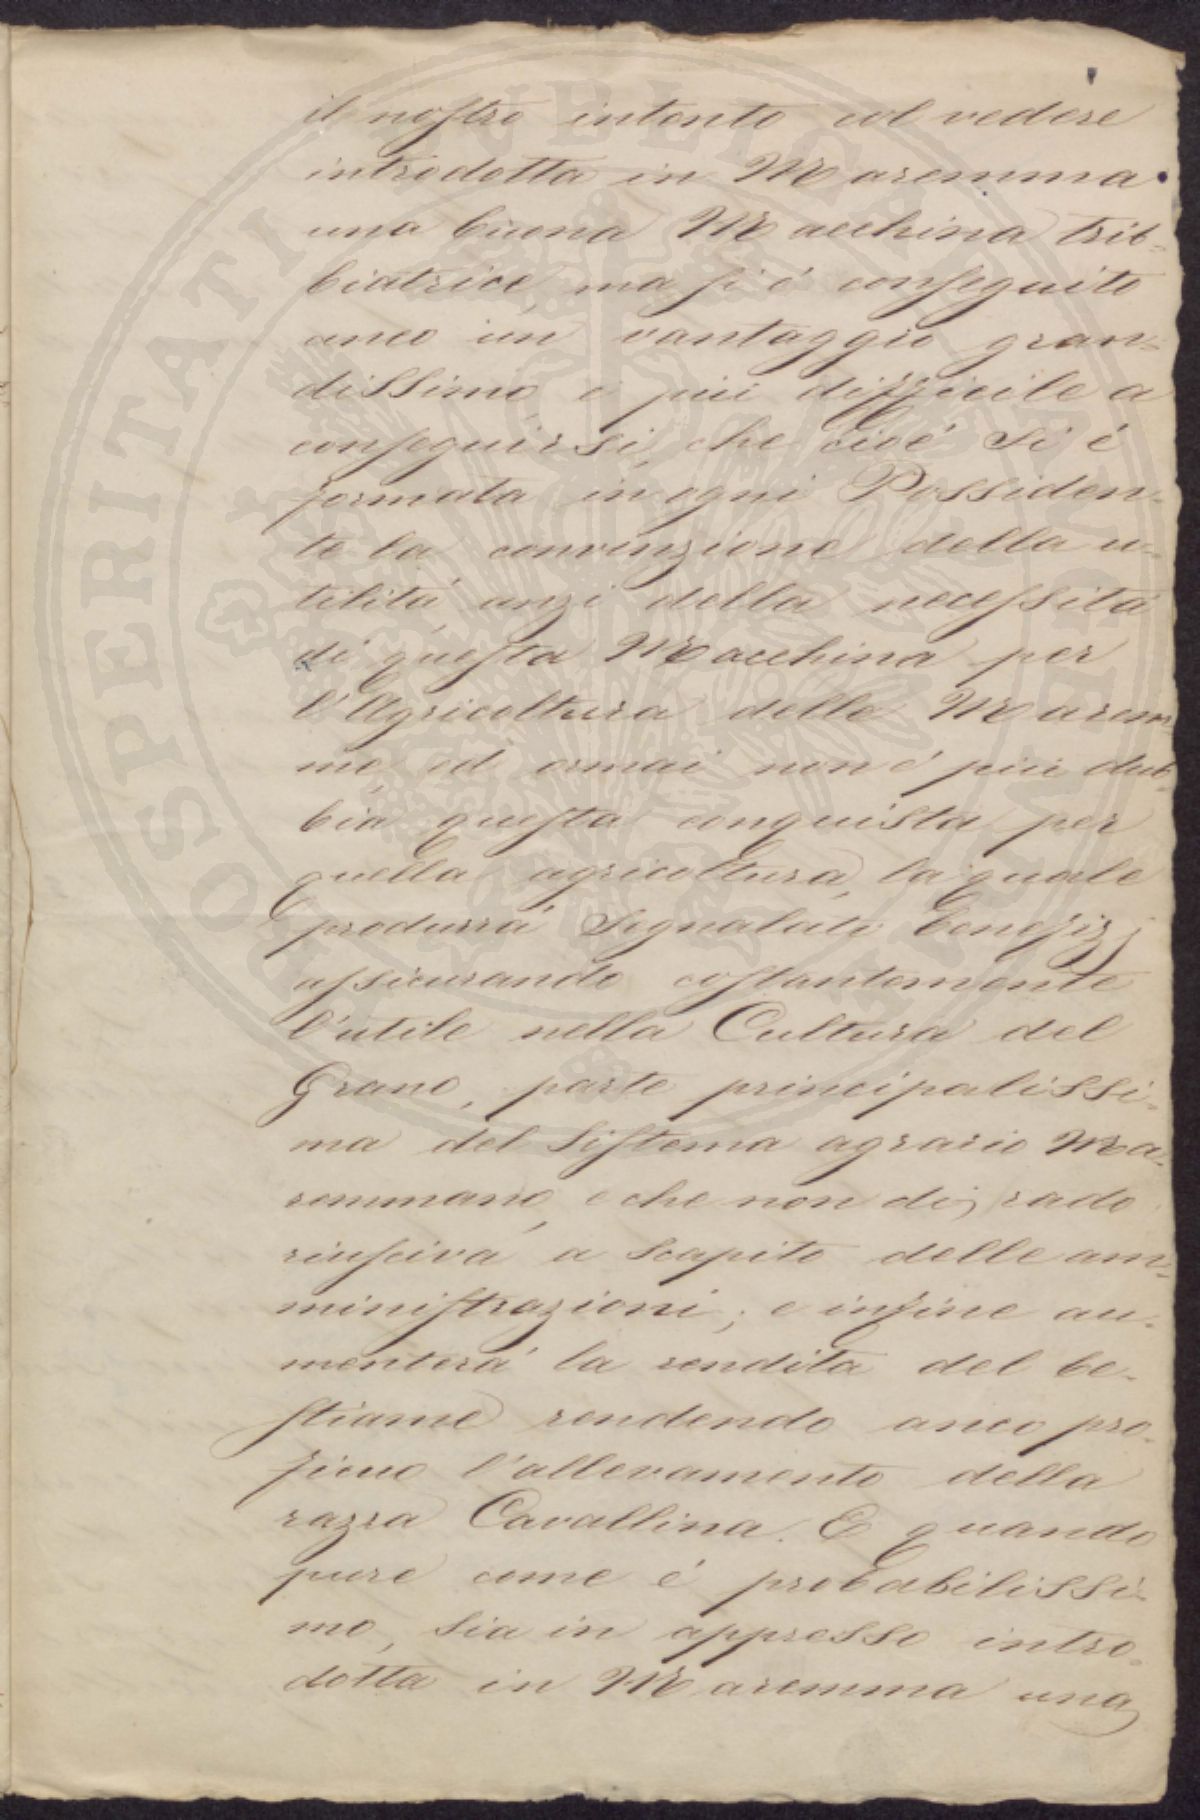 il nostro intento col vedere
introdotta in Maremma
una buona Macchina trib-
biatrice, ma si é conseguito
anco un vantaggio gran-
dissimo e piú difficile a
conseguirsi, che cioé si é
formata in ogni Possiden-
te la convinzione della u-
tilitá, anzi della necessitá
di questa Macchina per
l'Agricoltura delle Marem-
me, ed ormai non é piú dub-
bia questa conquista per
quella agricoltura, la quale
produrrá segnalati benefizj
assicurando costantemente
l'utile nella Cultura del
Grano, parte principalissi-
ma del Sistema agrario Ma-
remmano, e che non di rado
riusciva a scapito delle am-
ministrazioni; e infine au-
menterá la rendita del be-
stiame rendendo anco pro-
ficuo l'allevamento della
razza Cavallina. E quando
pure come é probabilissi-
mo, sia in appresso intro-
dotta in Maremma una
PROSPERITATI PUBLICAE AUGENDAE